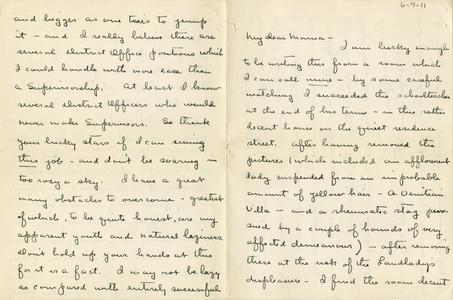 and bigger as one tries to jump
it - and I really believe there are
several District Office positions which
I could handle with more ease than
a Supervisorship. At least I know
several District Officers who would
never make Supervisors. So thank
your lucky stars if I can swing
this job - and don't be soaring in
too rosy a sky. I have a great
many obstacles to overcome - greatest
of which, to be quite honest, are my
apparent youth and natural laziness
Don't hold up your hands at this
for it is a fact. I may not be lazy
as compared with entirely successful
6-7-11
My dear Mamma -
I am lucky enough
to be writing this from a room which
I can call mine - by some careful
watching I succeeded the schoolteacher
at the end of his term - in this rather
decent house on the quiet residence
street. After having removed the
pictures (which included an
lady suspended from an improbable
amount of yellow hair - a Venitian
Villa - and a rheumatic stag pur-
sued by a couple of hounds of very
affected demeanour) - after removing
these at the risk of the Landlady's
displeasure - I find the room decent